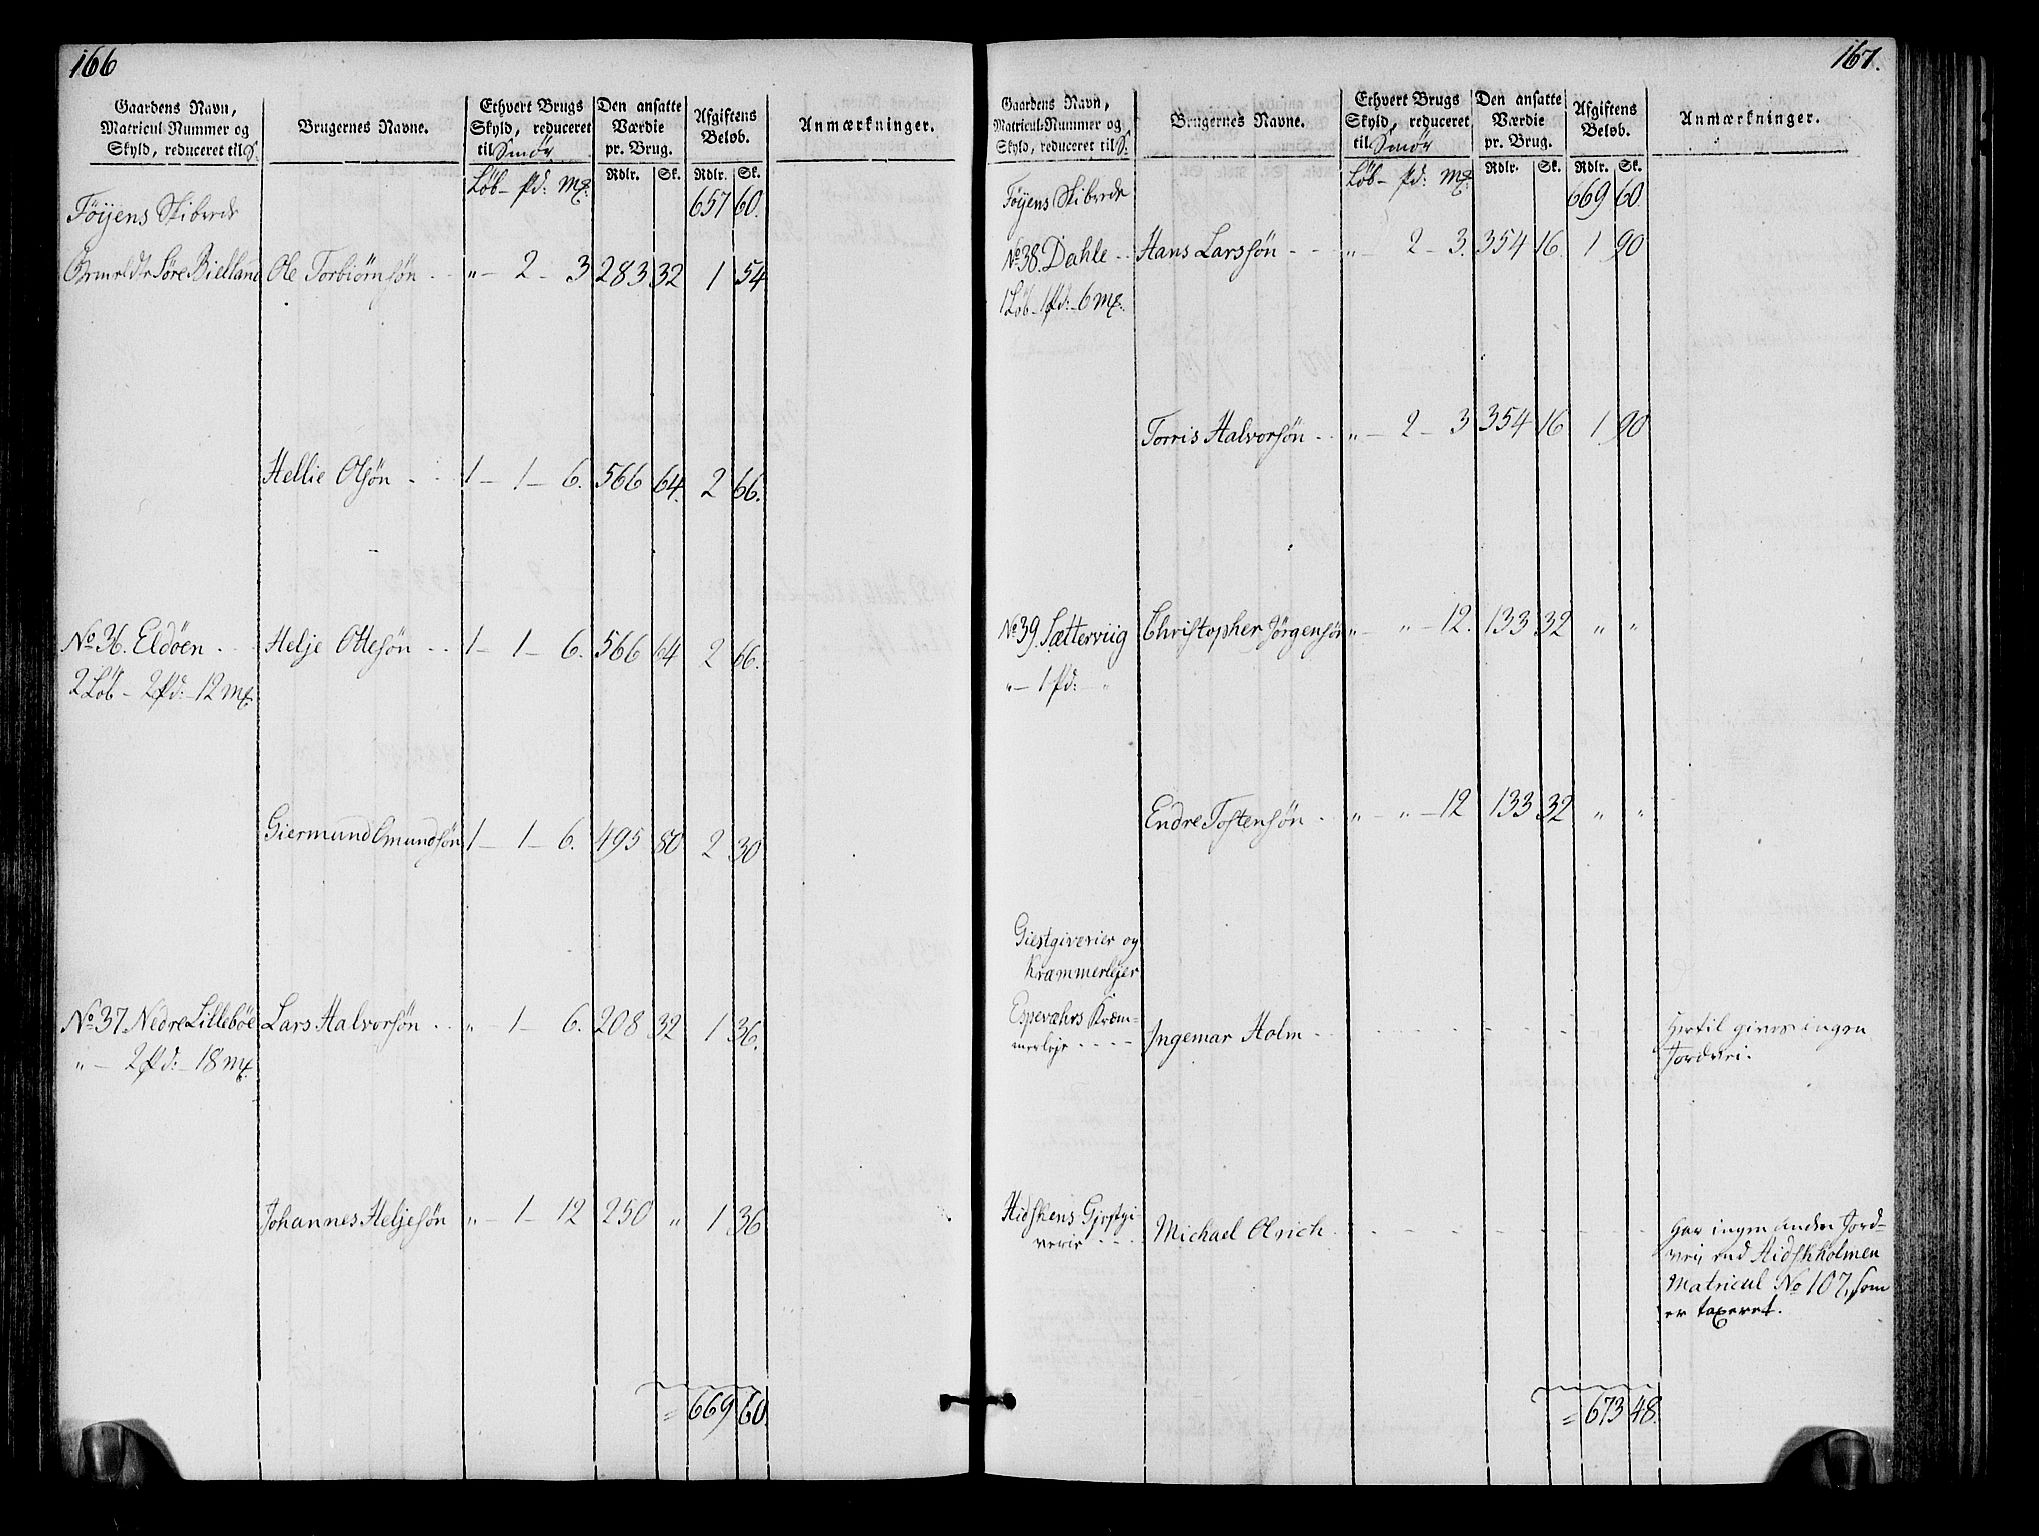 166
Gaardens Navn, Matricul-Nummer og Skyld, reduceret til S: | Brugernes Navne. | Ethvert Brugs Skyld, reduceret til Smör | Den ansatte Værdie pr. Brug. | Afgiftens Beløb. | Anmærkninger.
Löb – Pd: Mk: | Rdlr. | Sk. | Rdlr. | Sk.
Föyens Skibrede | 657 | 60.
Söre Bielland | Ole Torbiörnsön | „ – 2 – 3 | 283 | 32 | 1 | 54
Hellie Olsön | 1 – 1 – 6. | 566 | 64. | 2 | 66.
No 36. Eldöen | Helje Ottesön | 1 – 1 – 6. | 566 | 64 | 2 | 66.
2 Löb – 2 Pd: – 12 Mk.
Giermund Omundsön | 1 – 1 – 6. | 495 | 80 | 2 | 30
No 37 Nedre Lilleböe | Lars Halvorsön | „ – 1 – 6. | 208 | 32 | 1 | 36.
„ – 2 Pd: – 18 Mk.
Johannes Heljesön | „ – 1 – 12 | 250 | „ | 1 | 36
= 669 | 60
167.
Gaardens Navn, Matricul-Nummer og Skyld, reduceret til S: | Brugernes Navne. | Ethvert Brugs Skyld, reduceret til Smör | Den ansatte Værdie pr. Brug. | Afgiftens Beløb. | Anmærkninger.
Löb – Pd: Mk: | Rdlr. | Sk. | Rdlr. | Sk.
Föyens Skibrede | 669 | 60
No 38. Dahle | Hans Larssön | „ – 2 – 3. | 354 | 16. | 1 | 90
1 Löb – 1 Pd: – 6 Mk.
Torris Halvorsön | „ – 2 – 3 | 354 | 16 | 1 | 90
No 39. Sætterviig | Christopher Jörgensön | „ – „ – 12. | 133 | 32 | „ | „
„ – 1 Pd: – „
Endre Tostensön | „ – „ – 12 | 133 | 32 | „ | „
Giestgiverier og
Kræmmerlejer
Espeværs Kræm- | Ingemar Holm | Hertil gives ingen
merleje | Jordvei.
Hidskens Giestgi- | Michael Olrich | Har ingen anden Jord-
verie | vei end Hidskholmen
Matricul No 107, som
er taxeret.
= 673 | 48.